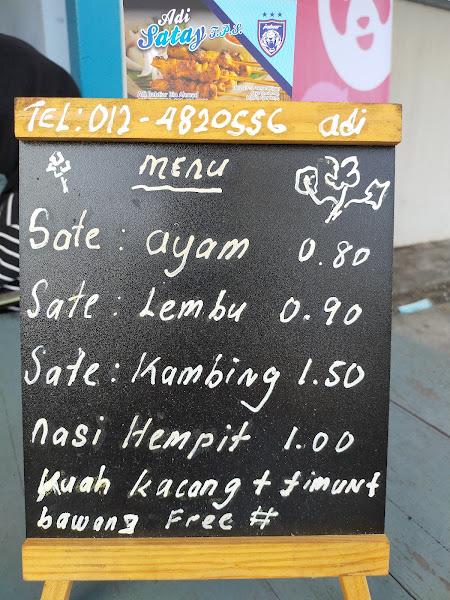 Adi
Satay T.P.S.
TEL: 012-4820556 adi
MENU
Sate : ayam 0.80
Sate : Lembu 0.90
Sate : Kambing 1.50
nasi Hempit 1.00
Kuah kacang + timunt
bawang Free #